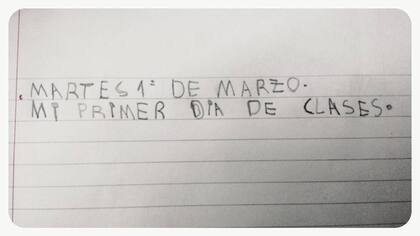 MARTES 1º DE MARZO.
MI PRIMER DIA DE CLASES.